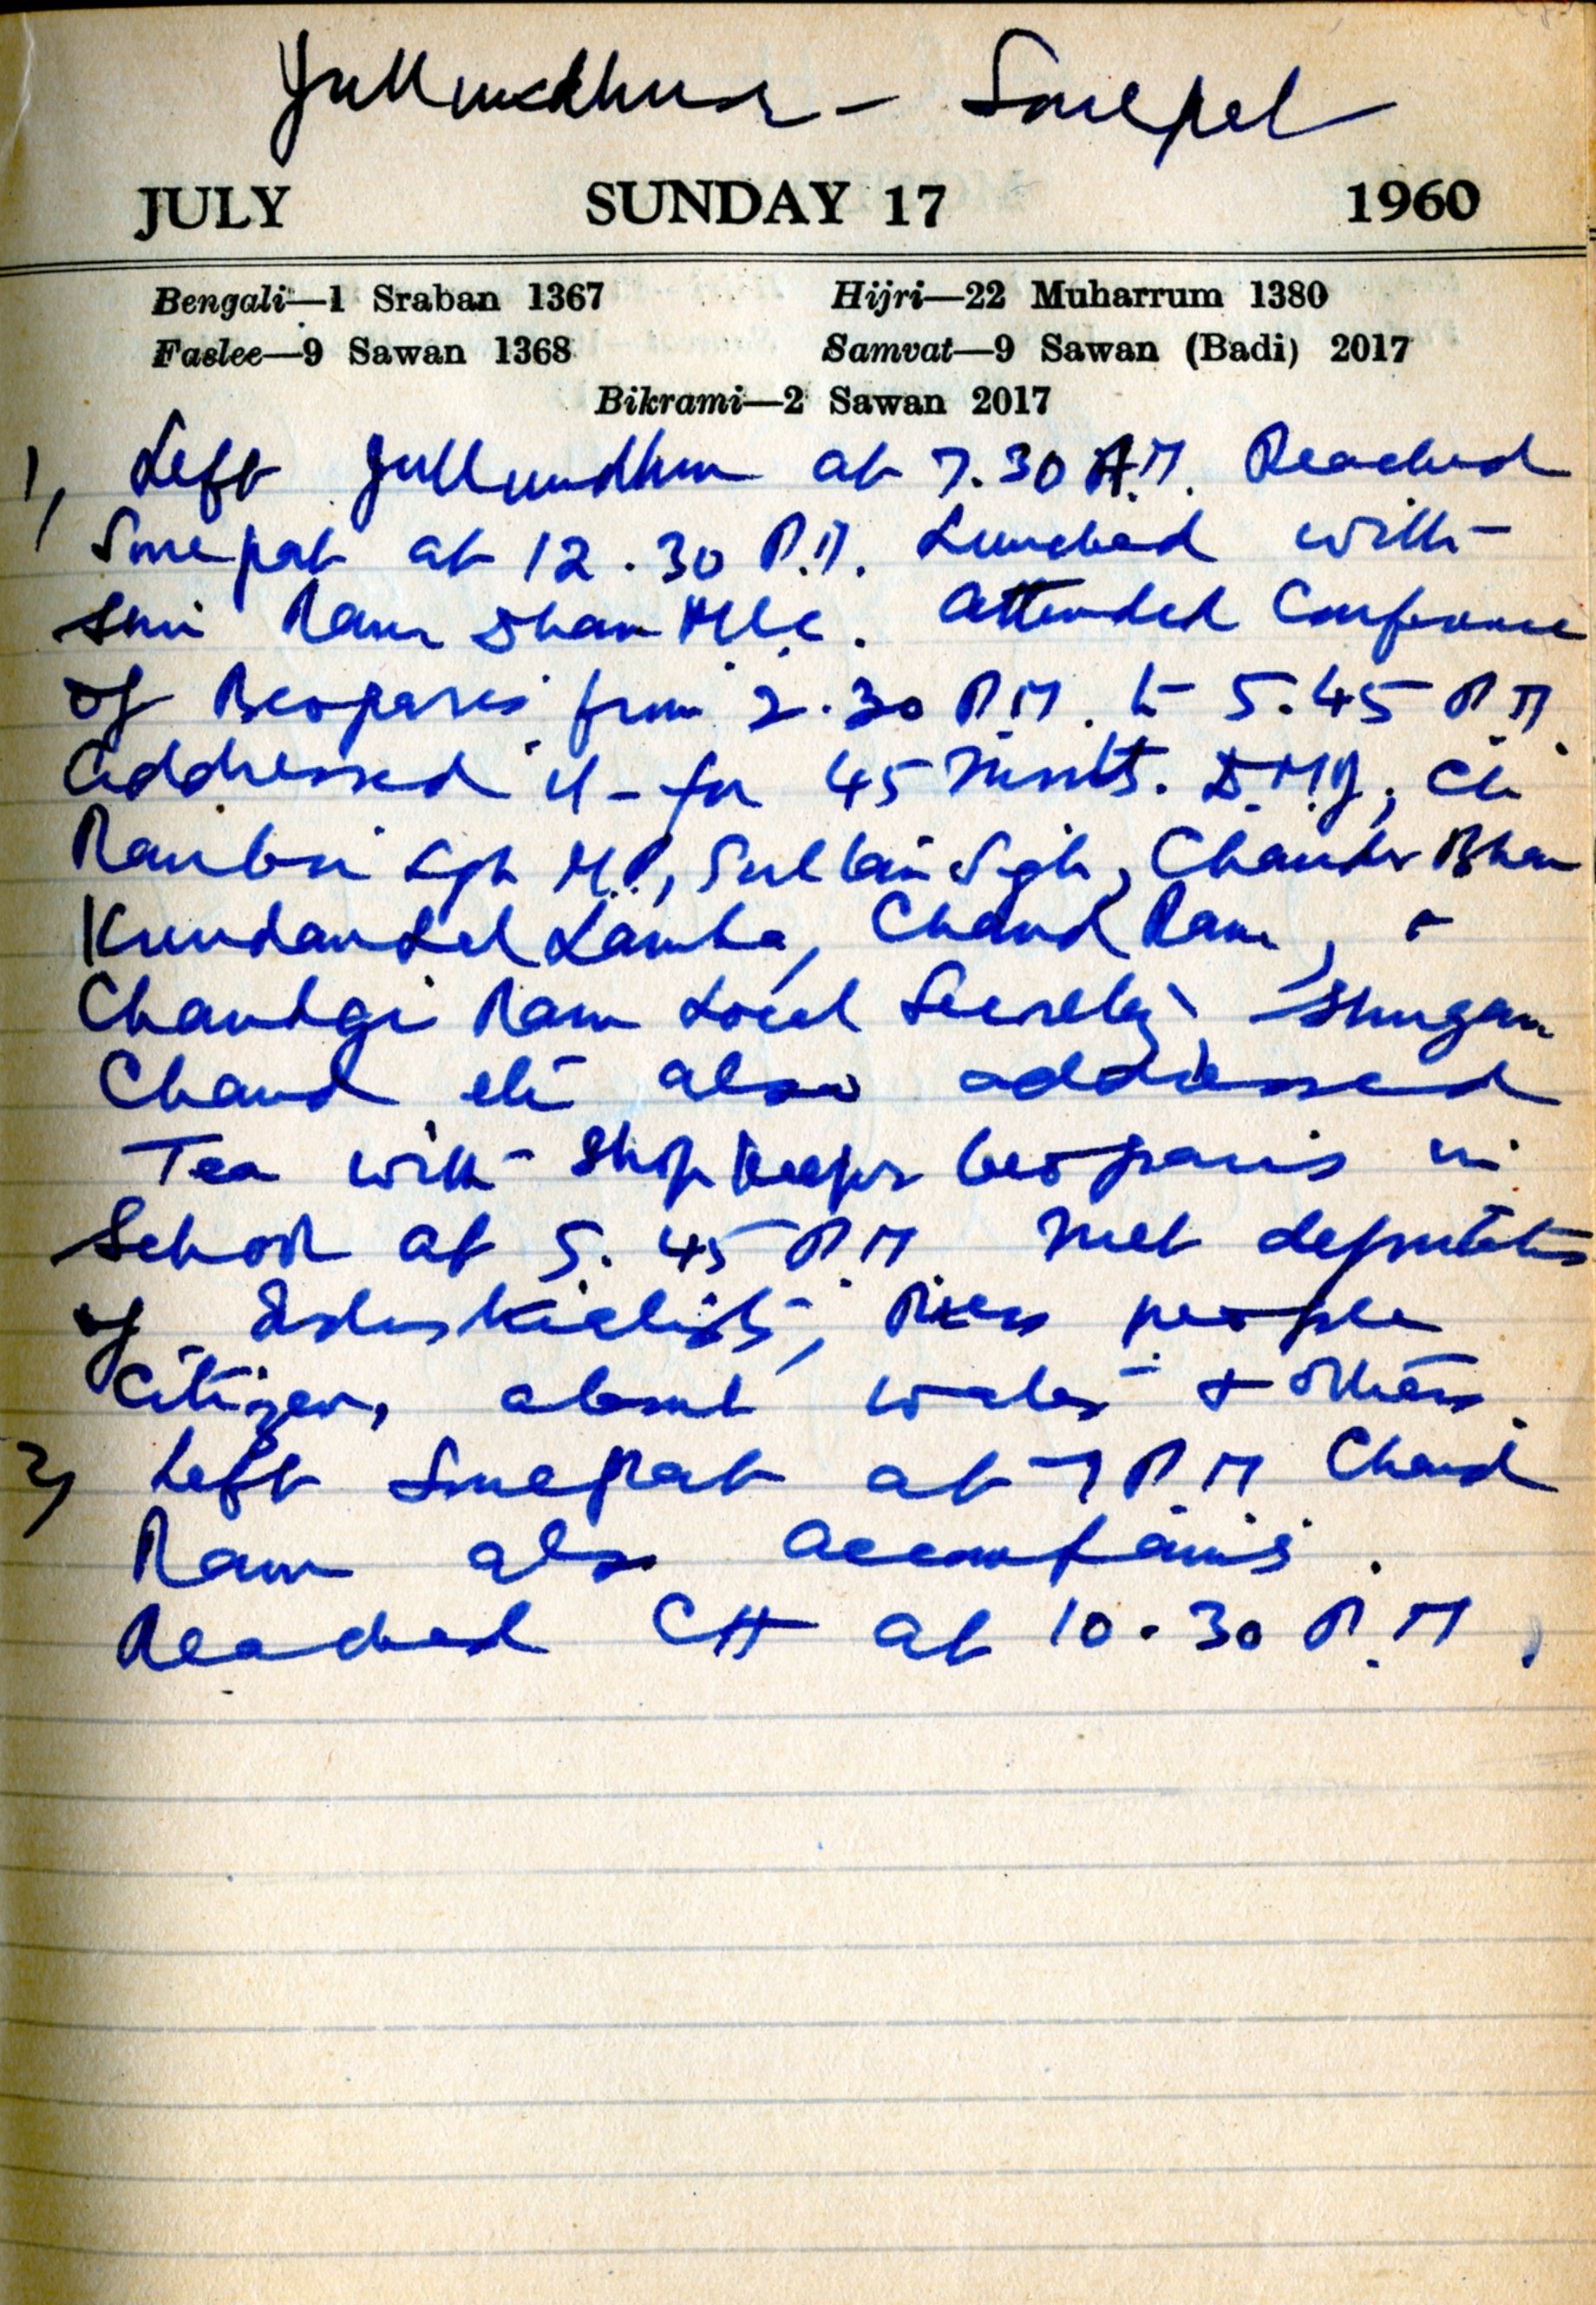 Jullundhur - Sonepat
JULY SUNDAY 17 1960
Bengali—1 Sraban 1367 Hijri—22 Muharrum 1380
Faslee—9 Sawan 1368 Samvat—9 Sawan (Badi) 2017
Bikrami—2 Sawan 2017
1, Left Jullundhur at 7.30 A.M. Reached
Sonepat at 12.30 P.M. Lunched with
Shri Ram Dhan MLC. Attended Conference
of Beoparis from 2.30 P.M. to 5.45 P.M.
Addressed it for 45 minuts. Ch
Ranbir Sgh M.P, Sultan Sigh, Chander Bhan
Kundan Lal Lamba, Chand Ram, &
Chandgi Ram Local Secretary, Shugan
Chand etc also addressed
Tea with Shopkeepr beoparis in
School at 5.45 P.M Met deputation
of Industrialists, Press people
Citizen, about water & others.
2, Left Sonepat at 7 P.M Chand
Ram also accompanis.
Reached CH at 10.30 P.M.